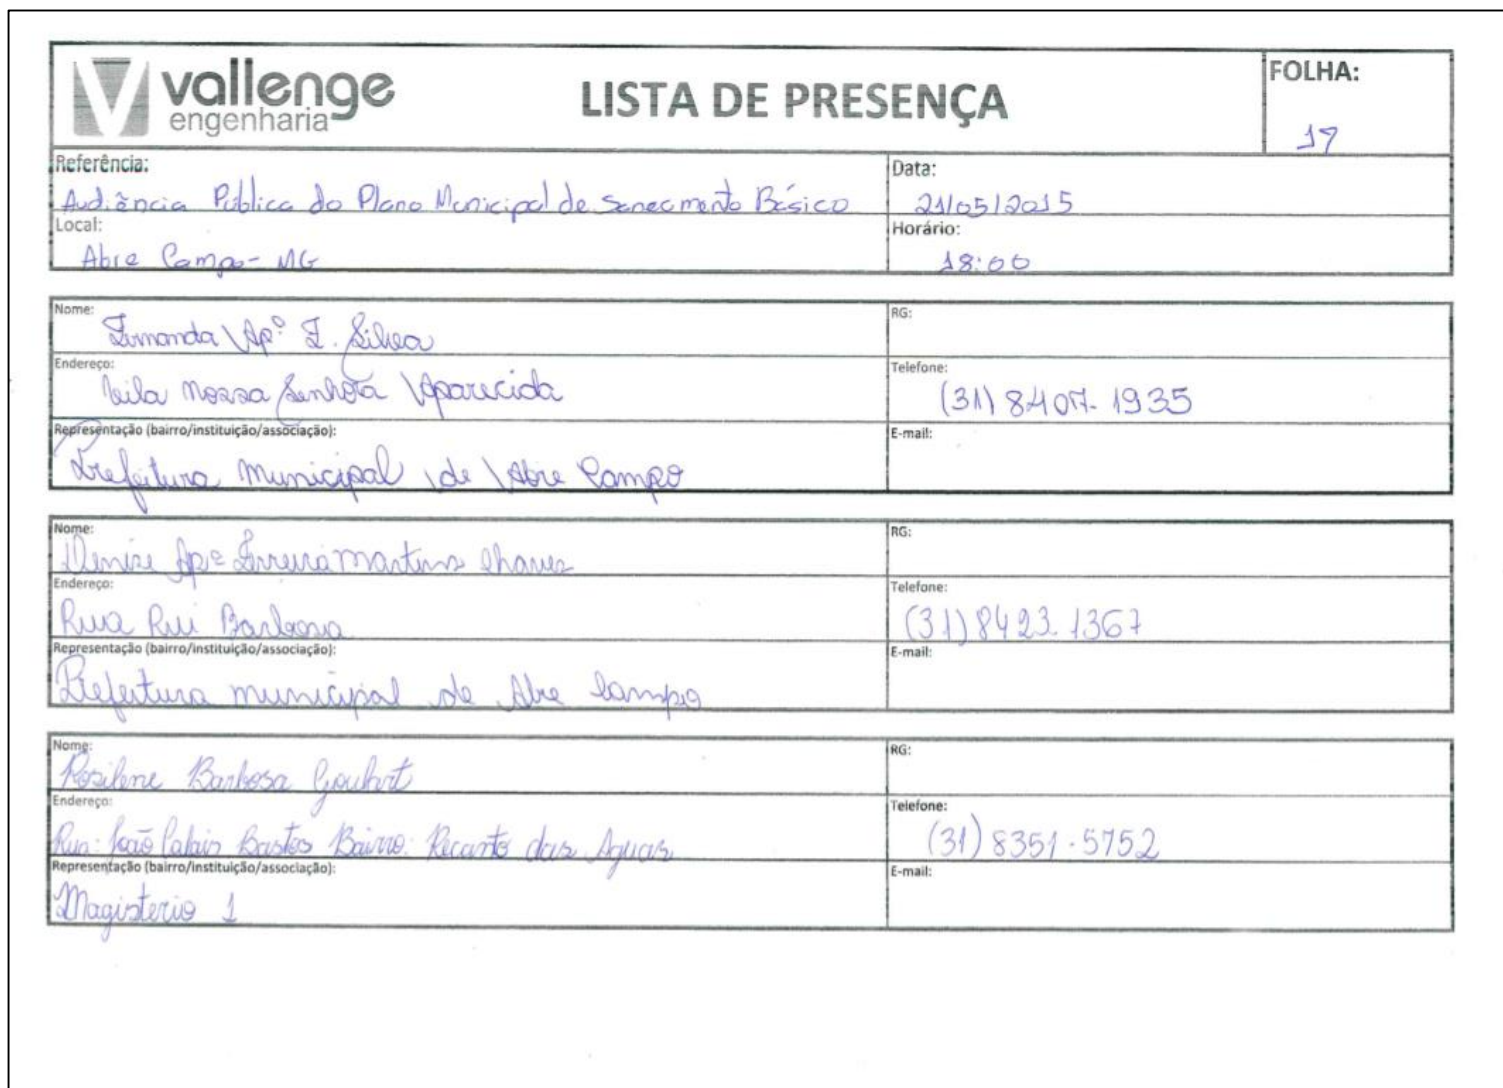 vallenge
engenharia
LISTA DE PRESENÇA
FOLHA:
17
Referência:
Audiância Pública do Plano Municipal de Saneamento Básico
Data:
21/05/2015
Local:
Abre Campo - MG
Horário:
18:00
Nome:
Fernanda Apª F. Silva
RG:
Endereço:
Vila Nossa Senhora Aparecida
Telefone:
(31) 8407-1935
Representação (bairro/instituição/associação):
Prefeitura Municipal de Abre Campo
E-mail:
Nome:
Denise Apª Ferreira Martins Chaves
RG:
Endereço:
Rua Rui Barbosa
Telefone:
(31) 8423.1367
Representação (bairro/instituição/associação):
Prefeitura municipal de Abre Campo
E-mail:
Nome:
Rosilene Barbosa Goulart
RG:
Endereço:
Rua: João Bastos Bairro: Recanto das Aguas
Telefone:
(31) 8351-5752
Representação (bairro/instituição/associação):
Magisterio 1
E-mail: